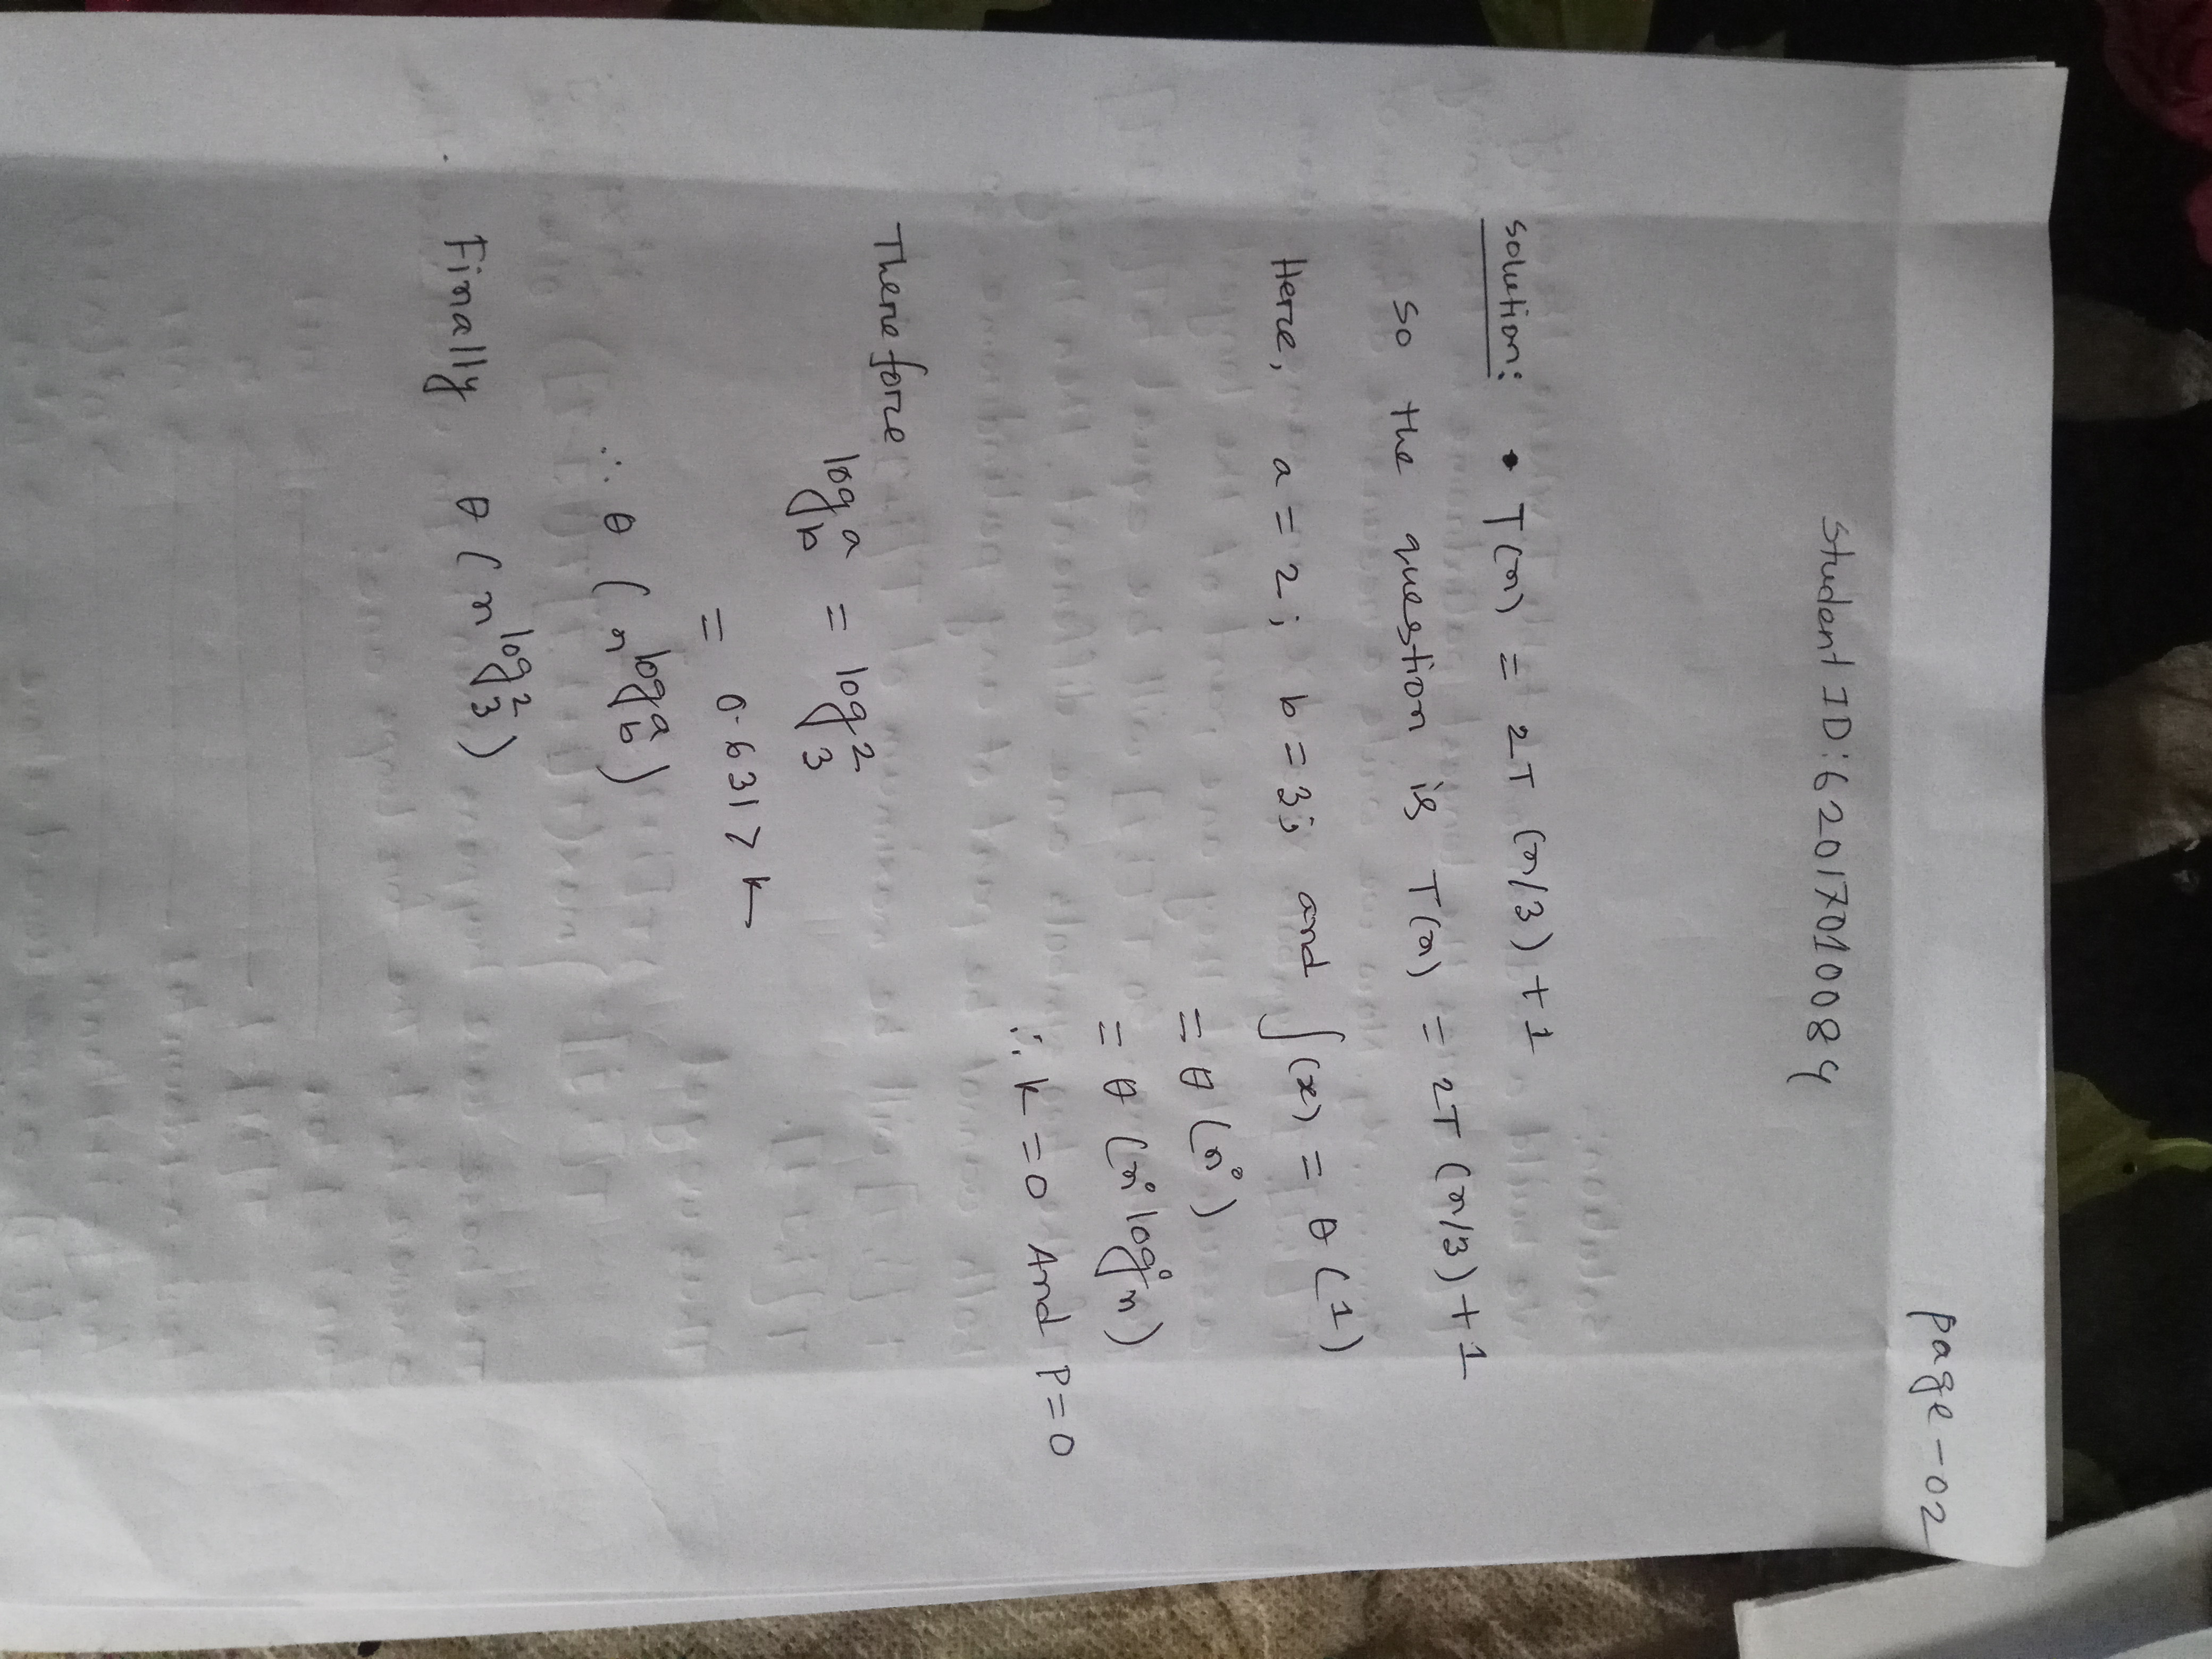 page-02
Student ID: 62017010084
Solution: • T(n) = 2T (n/3) + 1
so the question is T(n) = 2T (n/3) + 1
Here, a = 2; b = 3; and f(x) = θ (1)
= θ (n⁰)
= θ (n⁰ log⁰ n)
∴ k = 0 And P = 0
Therefore
log_b^a = log_3^2
= 0.631 > k
∴ θ (n^(log_b^a))
Finally θ (n^(log_3^2))